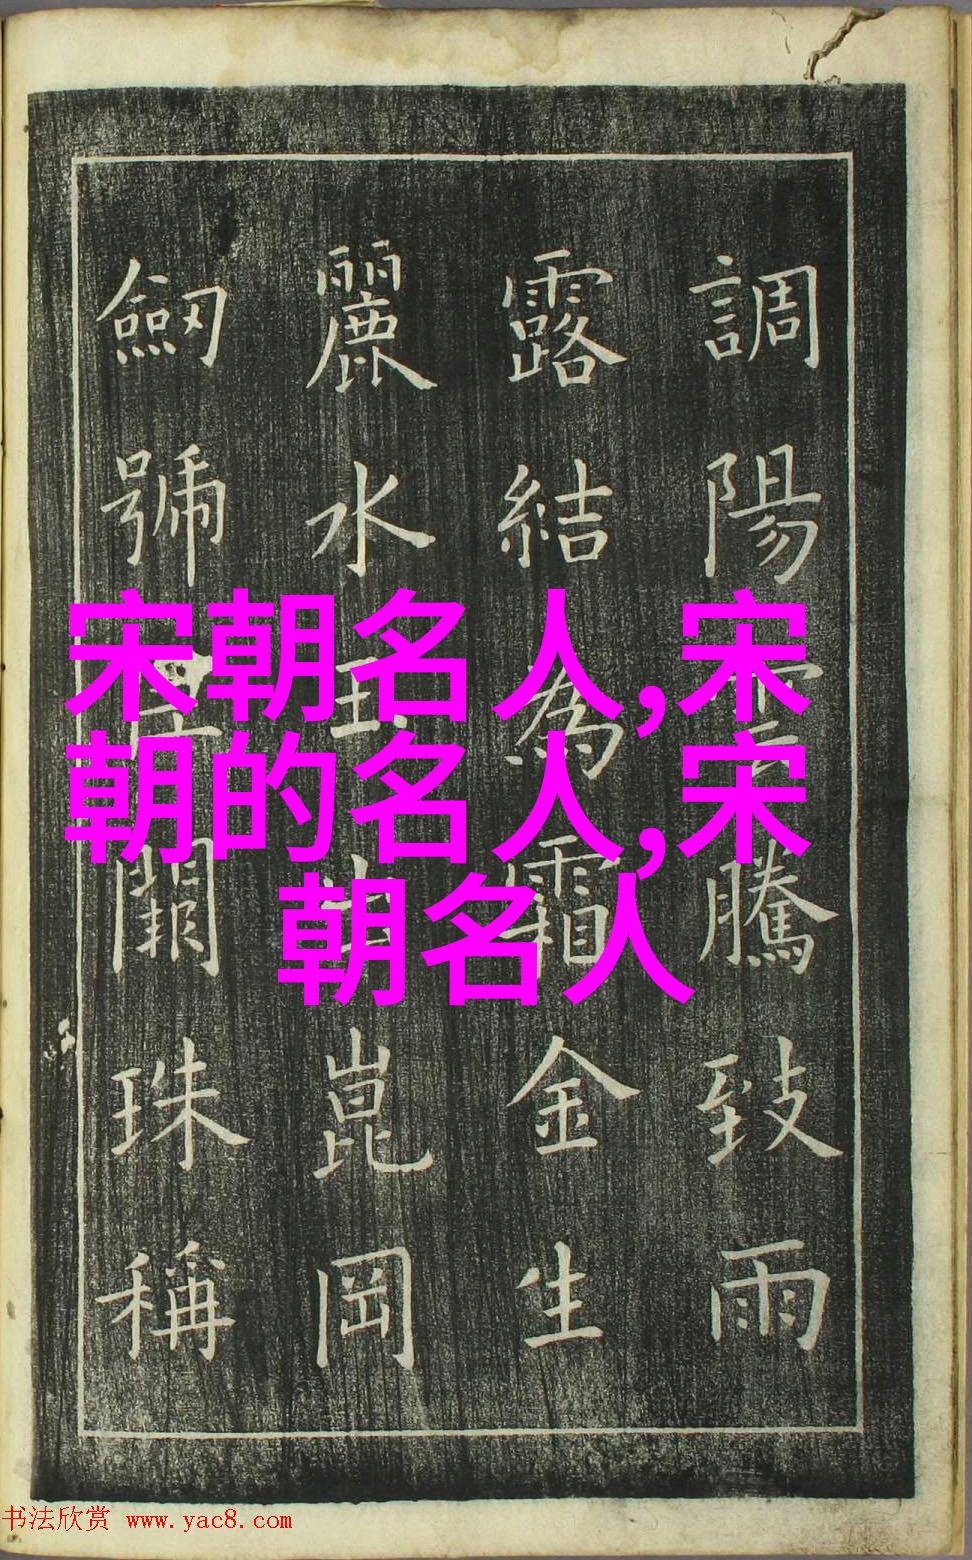 調陽騰致雨
露結為霜金生
麗水崑岡
劒號闕珠稱
宋朝名人,宋
朝的名人,宋
朝名人
书法欣赏 www.yac8.com